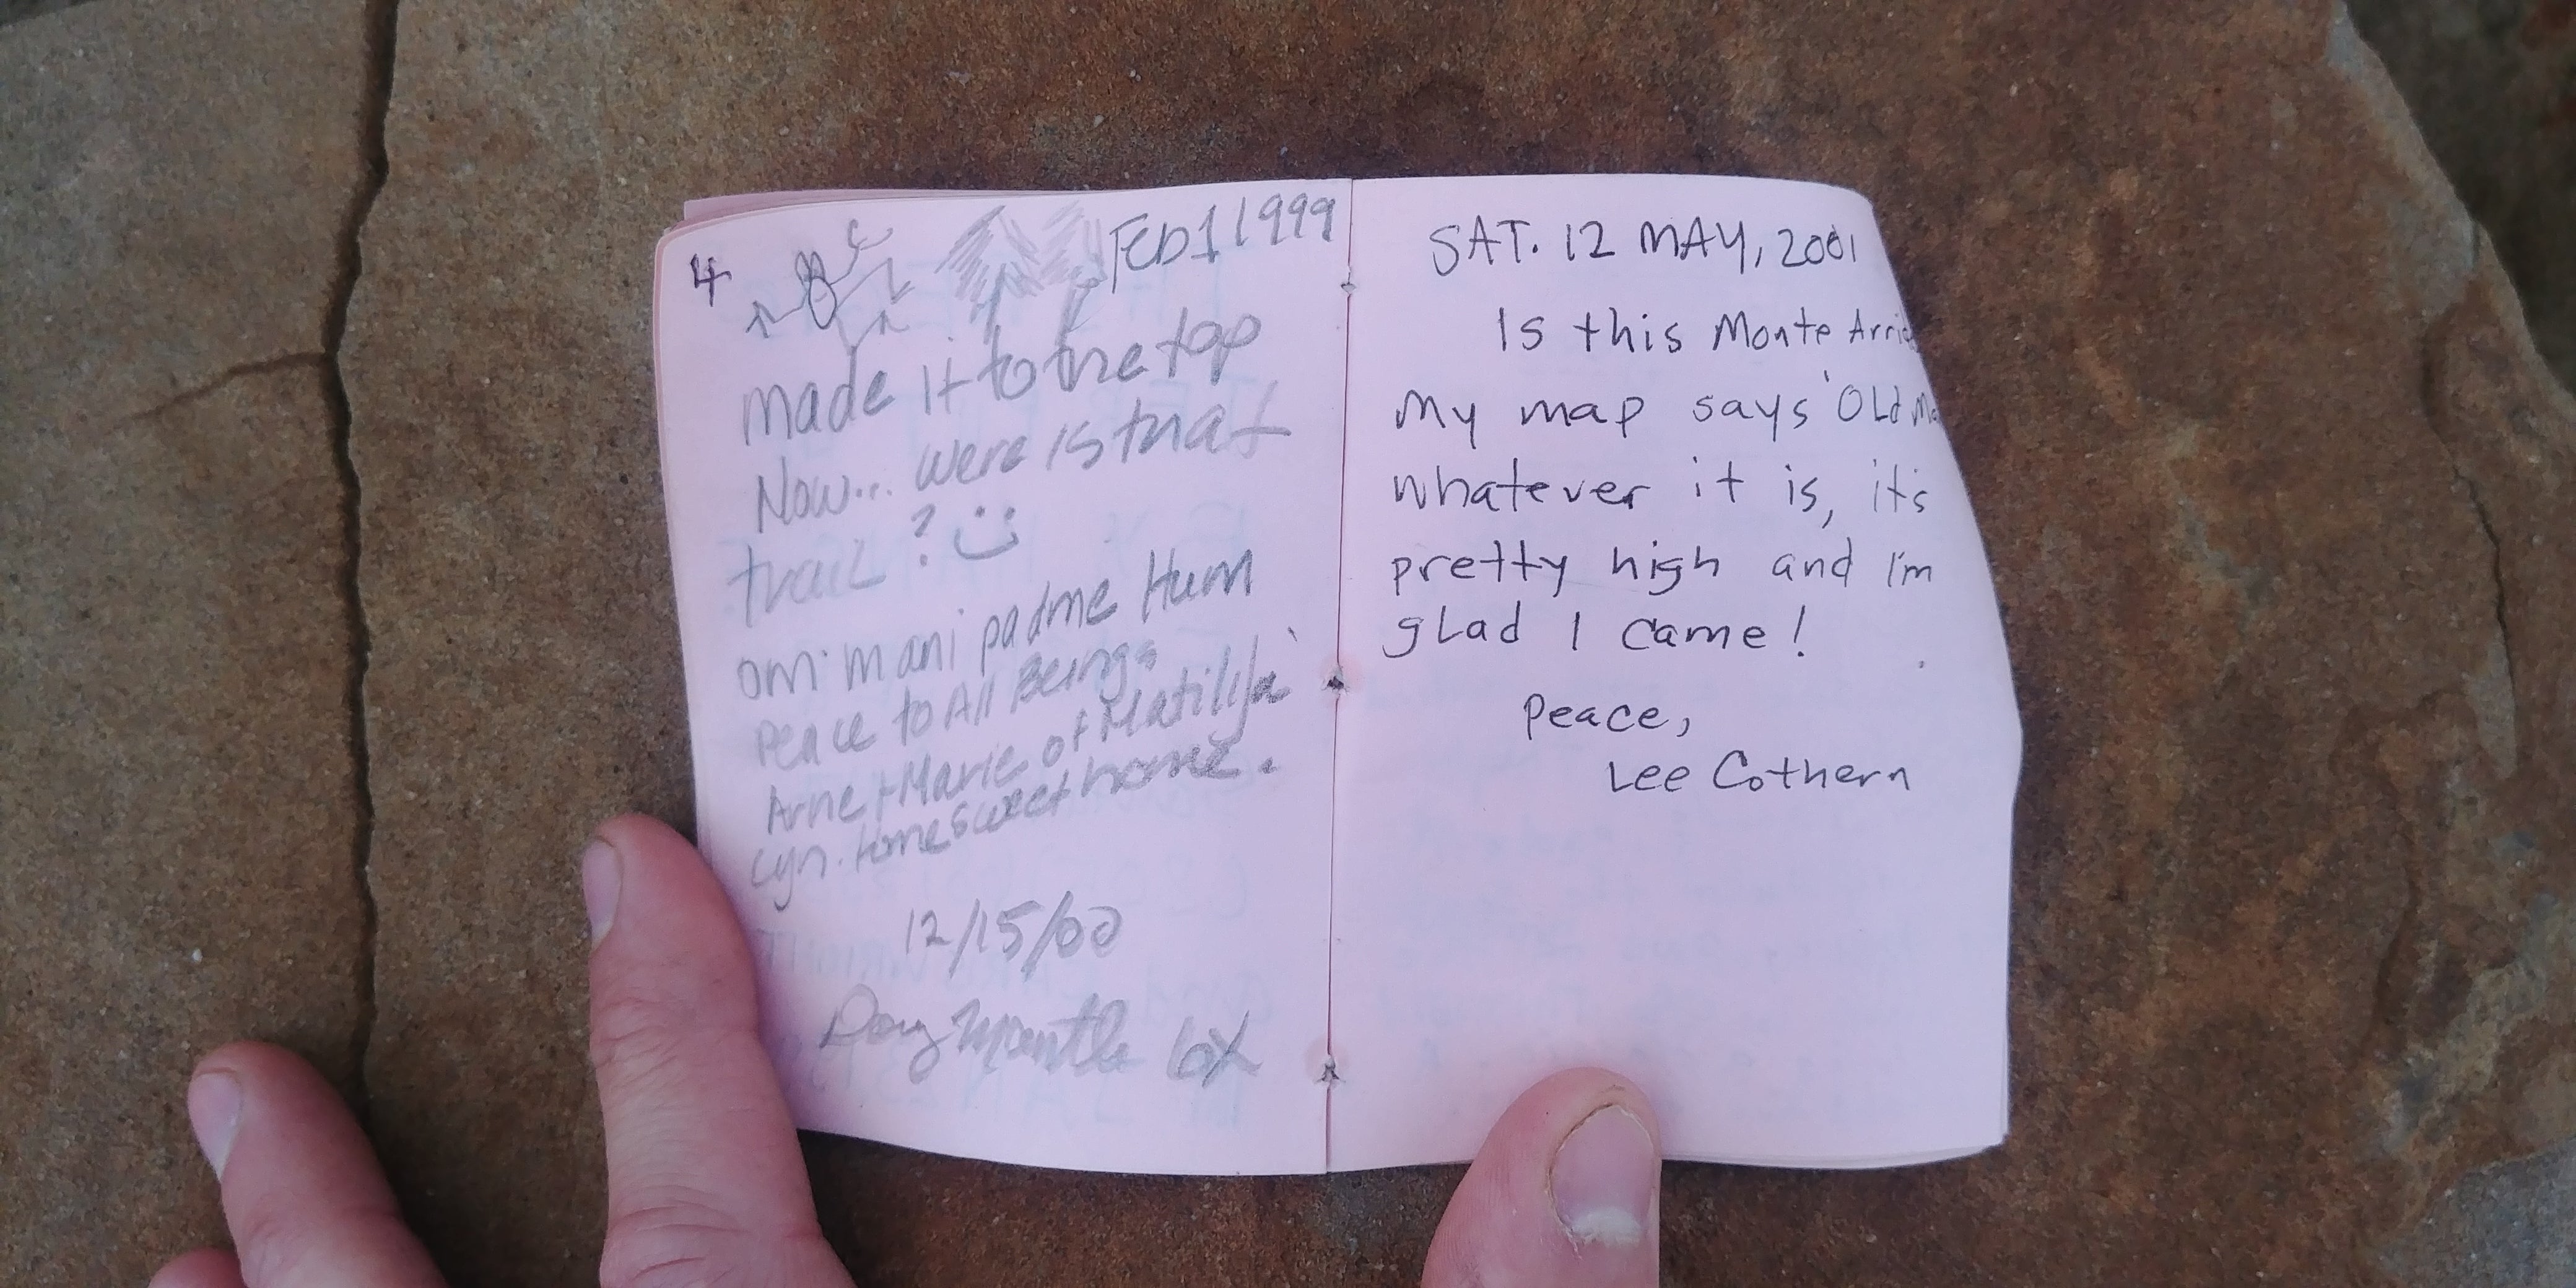 4
Feb 1 1999
made it to the top
Now... were is that
trail ? :)
om mani padme Hum
Peace to All Beings
Arne + Marie of Matilija
cyn. Home sweet home.
12/15/00
Doug Mantle 6X
SAT. 12 MAY, 2001
Is this Monte
My map says 'OLd
whatever it is, it's
pretty high and I'm
glad I came!
Peace,
Lee Cothern